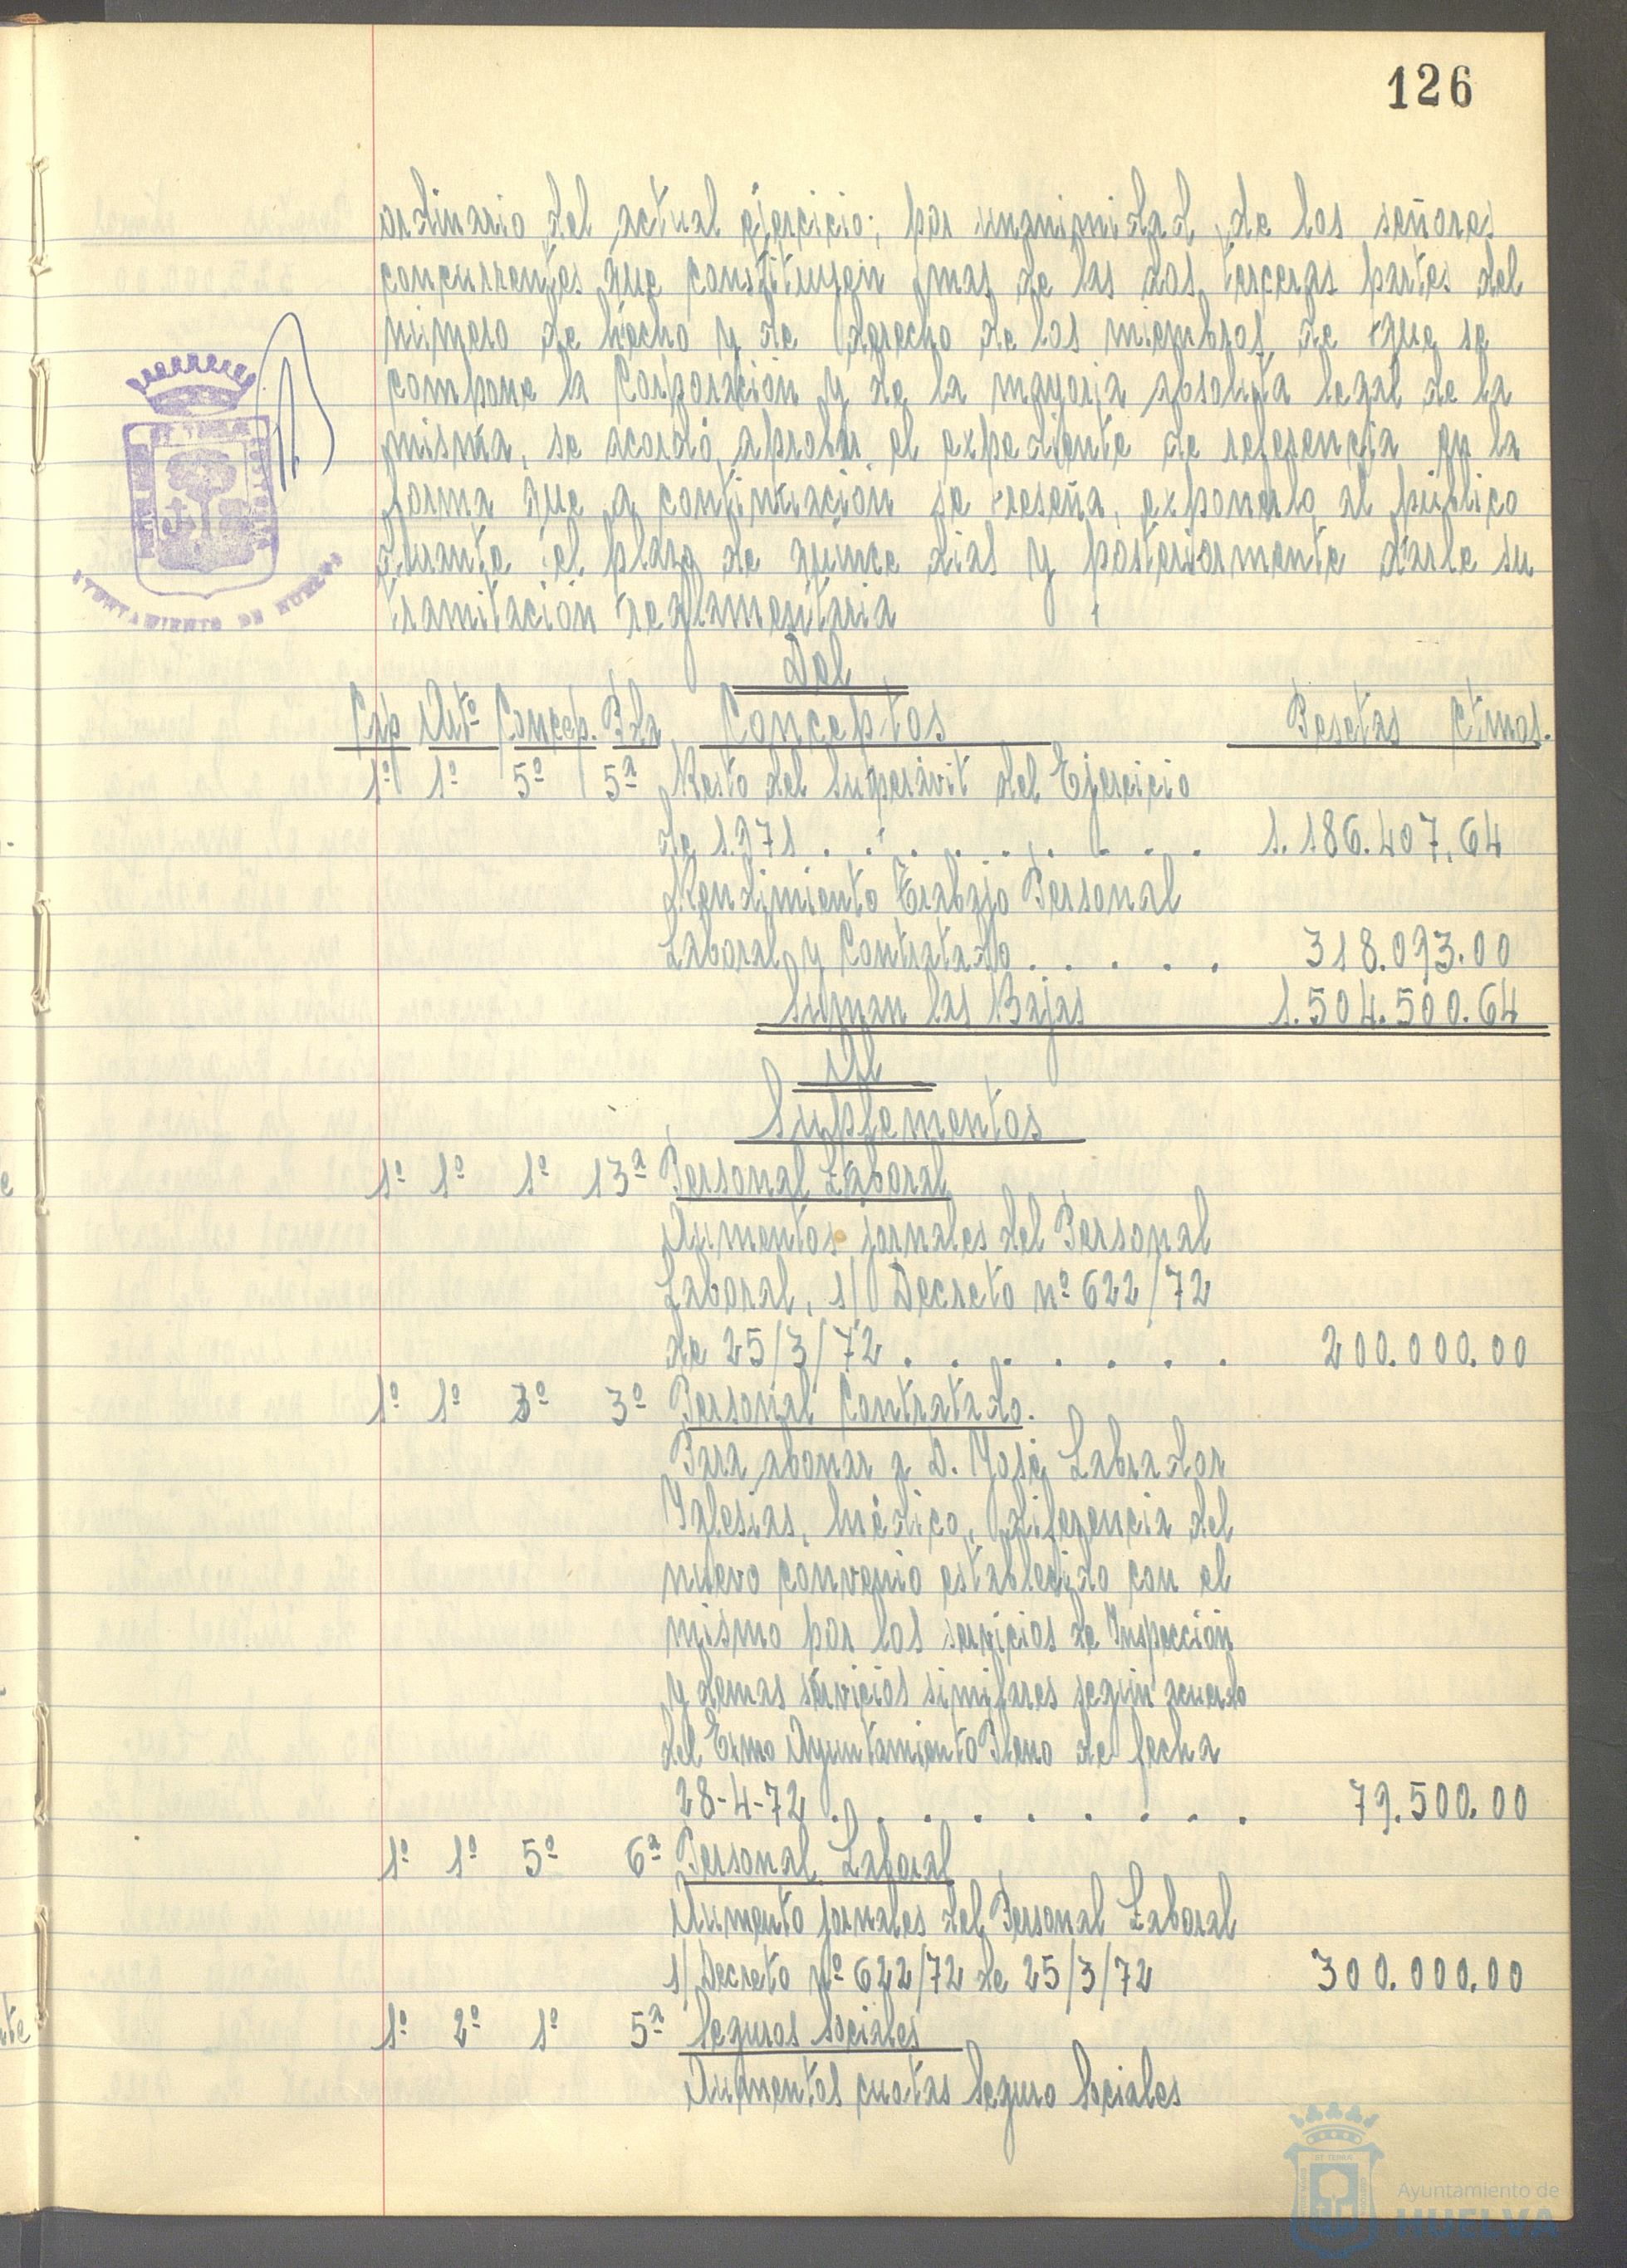 126
ordinario del actual ejercicio; por unanimidad de los señores
concurrentes que constituyen mas de las dos terceras partes del
número de hecho y de derecho de los miembros de que se
compone la Corporación y de la mayoria absoluta legal de la
misma, se acordó aprobar el expediente de referencia en la
forma que a continuación se reseña, exponerlo al público
durante el plazo de quince dias y posteriormente darle su
tramitación reglamentaria
AYUNTAMIENTO DE HUELVA
Del
Cap Artº Concep. Pda Conceptos Pesetas Ctmos.
1º 1º 5º 5ª Resto del Superávit del Ejercicio
de 1.971 . . . . . . . . . 1.186.407,64
Rendimiento Trabajo Personal
Laboral y Contratado . . . . . 318.093.00
Suman las Bajas 1.504.500.64
Al
Suplementos
1º 1º 1º 13ª Personal Laboral
Aumentos jornales del Personal
Laboral, s/ Decreto nº 622/72
de 25/3/72 . . . . . . . 200.000.00
1º 1º 3º 3º Personal Contratado.
Para abonar a D. José Labrador
Yglesias, Médico, diferencia del
nuevo convenio establecido con el
mismo por los servicios de Inspección
y demas servicios similares según acuerdo
del Exmo Ayuntamiento Pleno de fecha
28-4-72 . . . . . . . . 79.500.00
1º 1º 5º 6ª Personal Laboral
Aumento jornales del Personal Laboral
s/ Decreto nº 622/72 de 25/3/72 300.000.00
1º 2º 1º 5ª Seguros Sociales
Aumentos cuotas Seguro Sociales
Ayuntamiento de
HUELVA